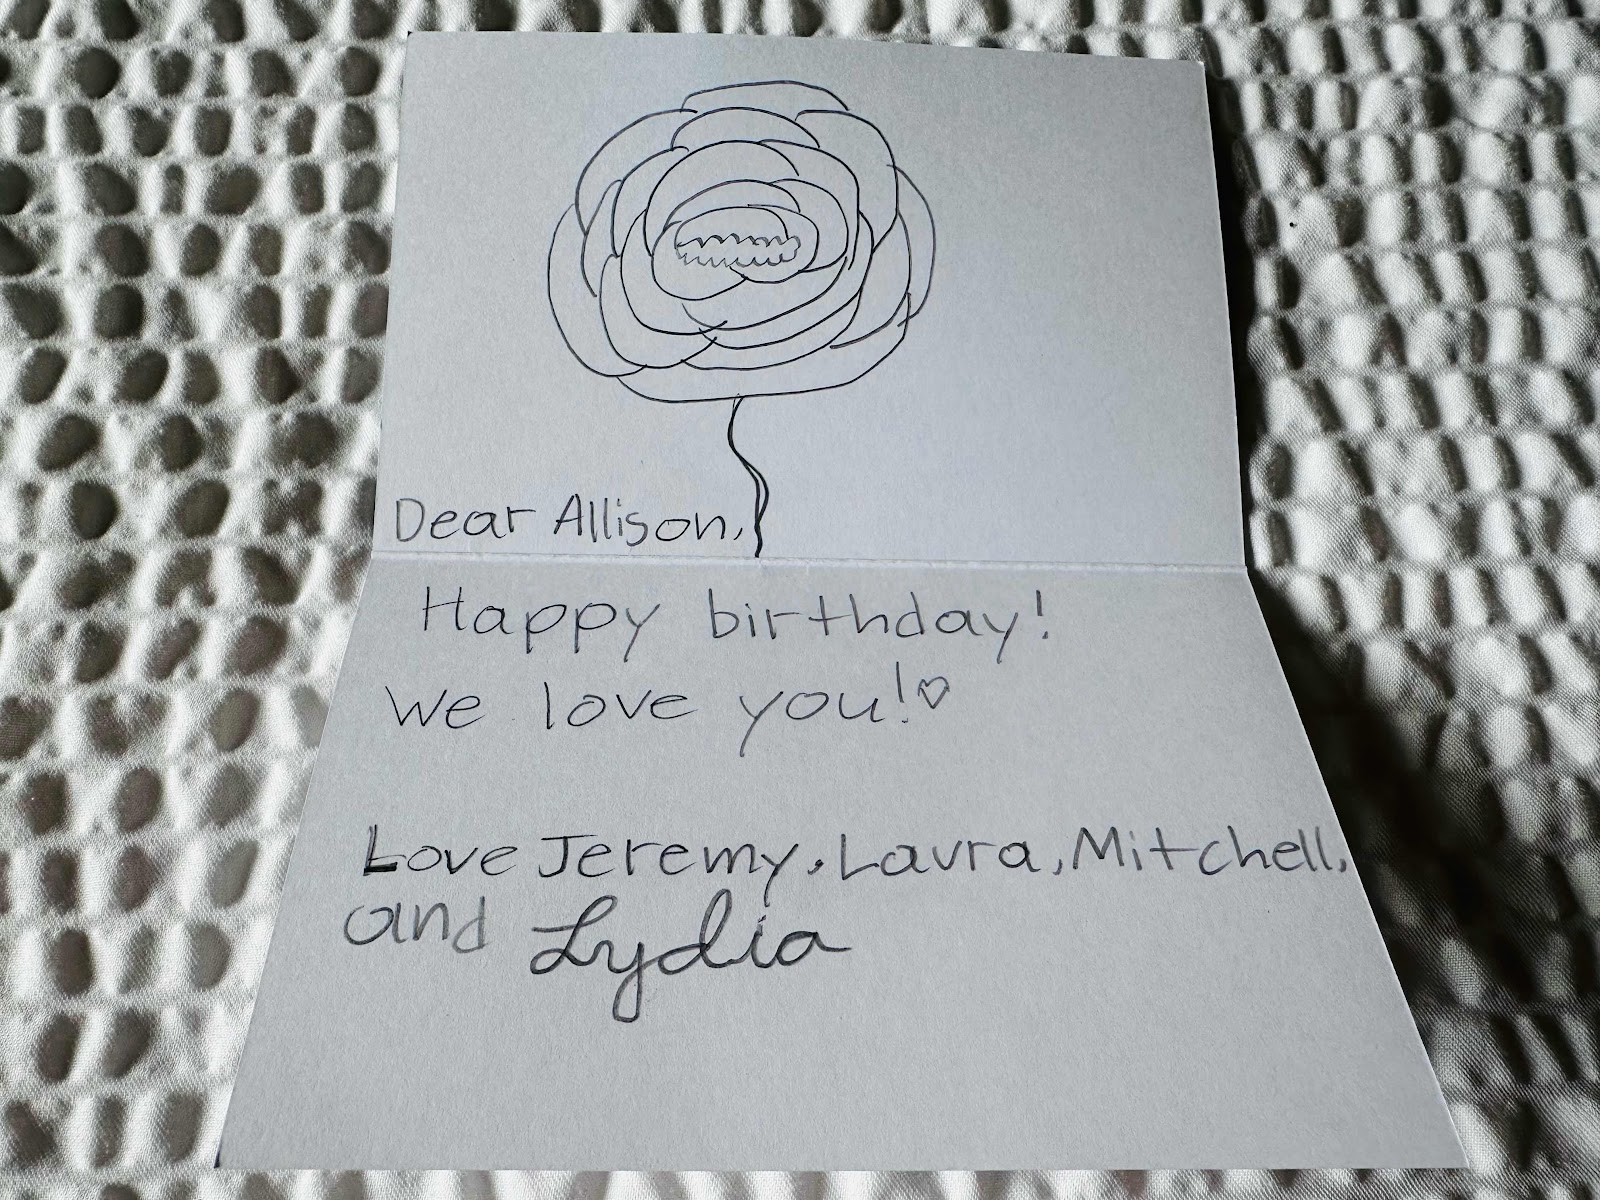 Dear Allison,
Happy birthday!
We love you!♡
Love Jeremy, Laura, Mitchell,
and Lydia